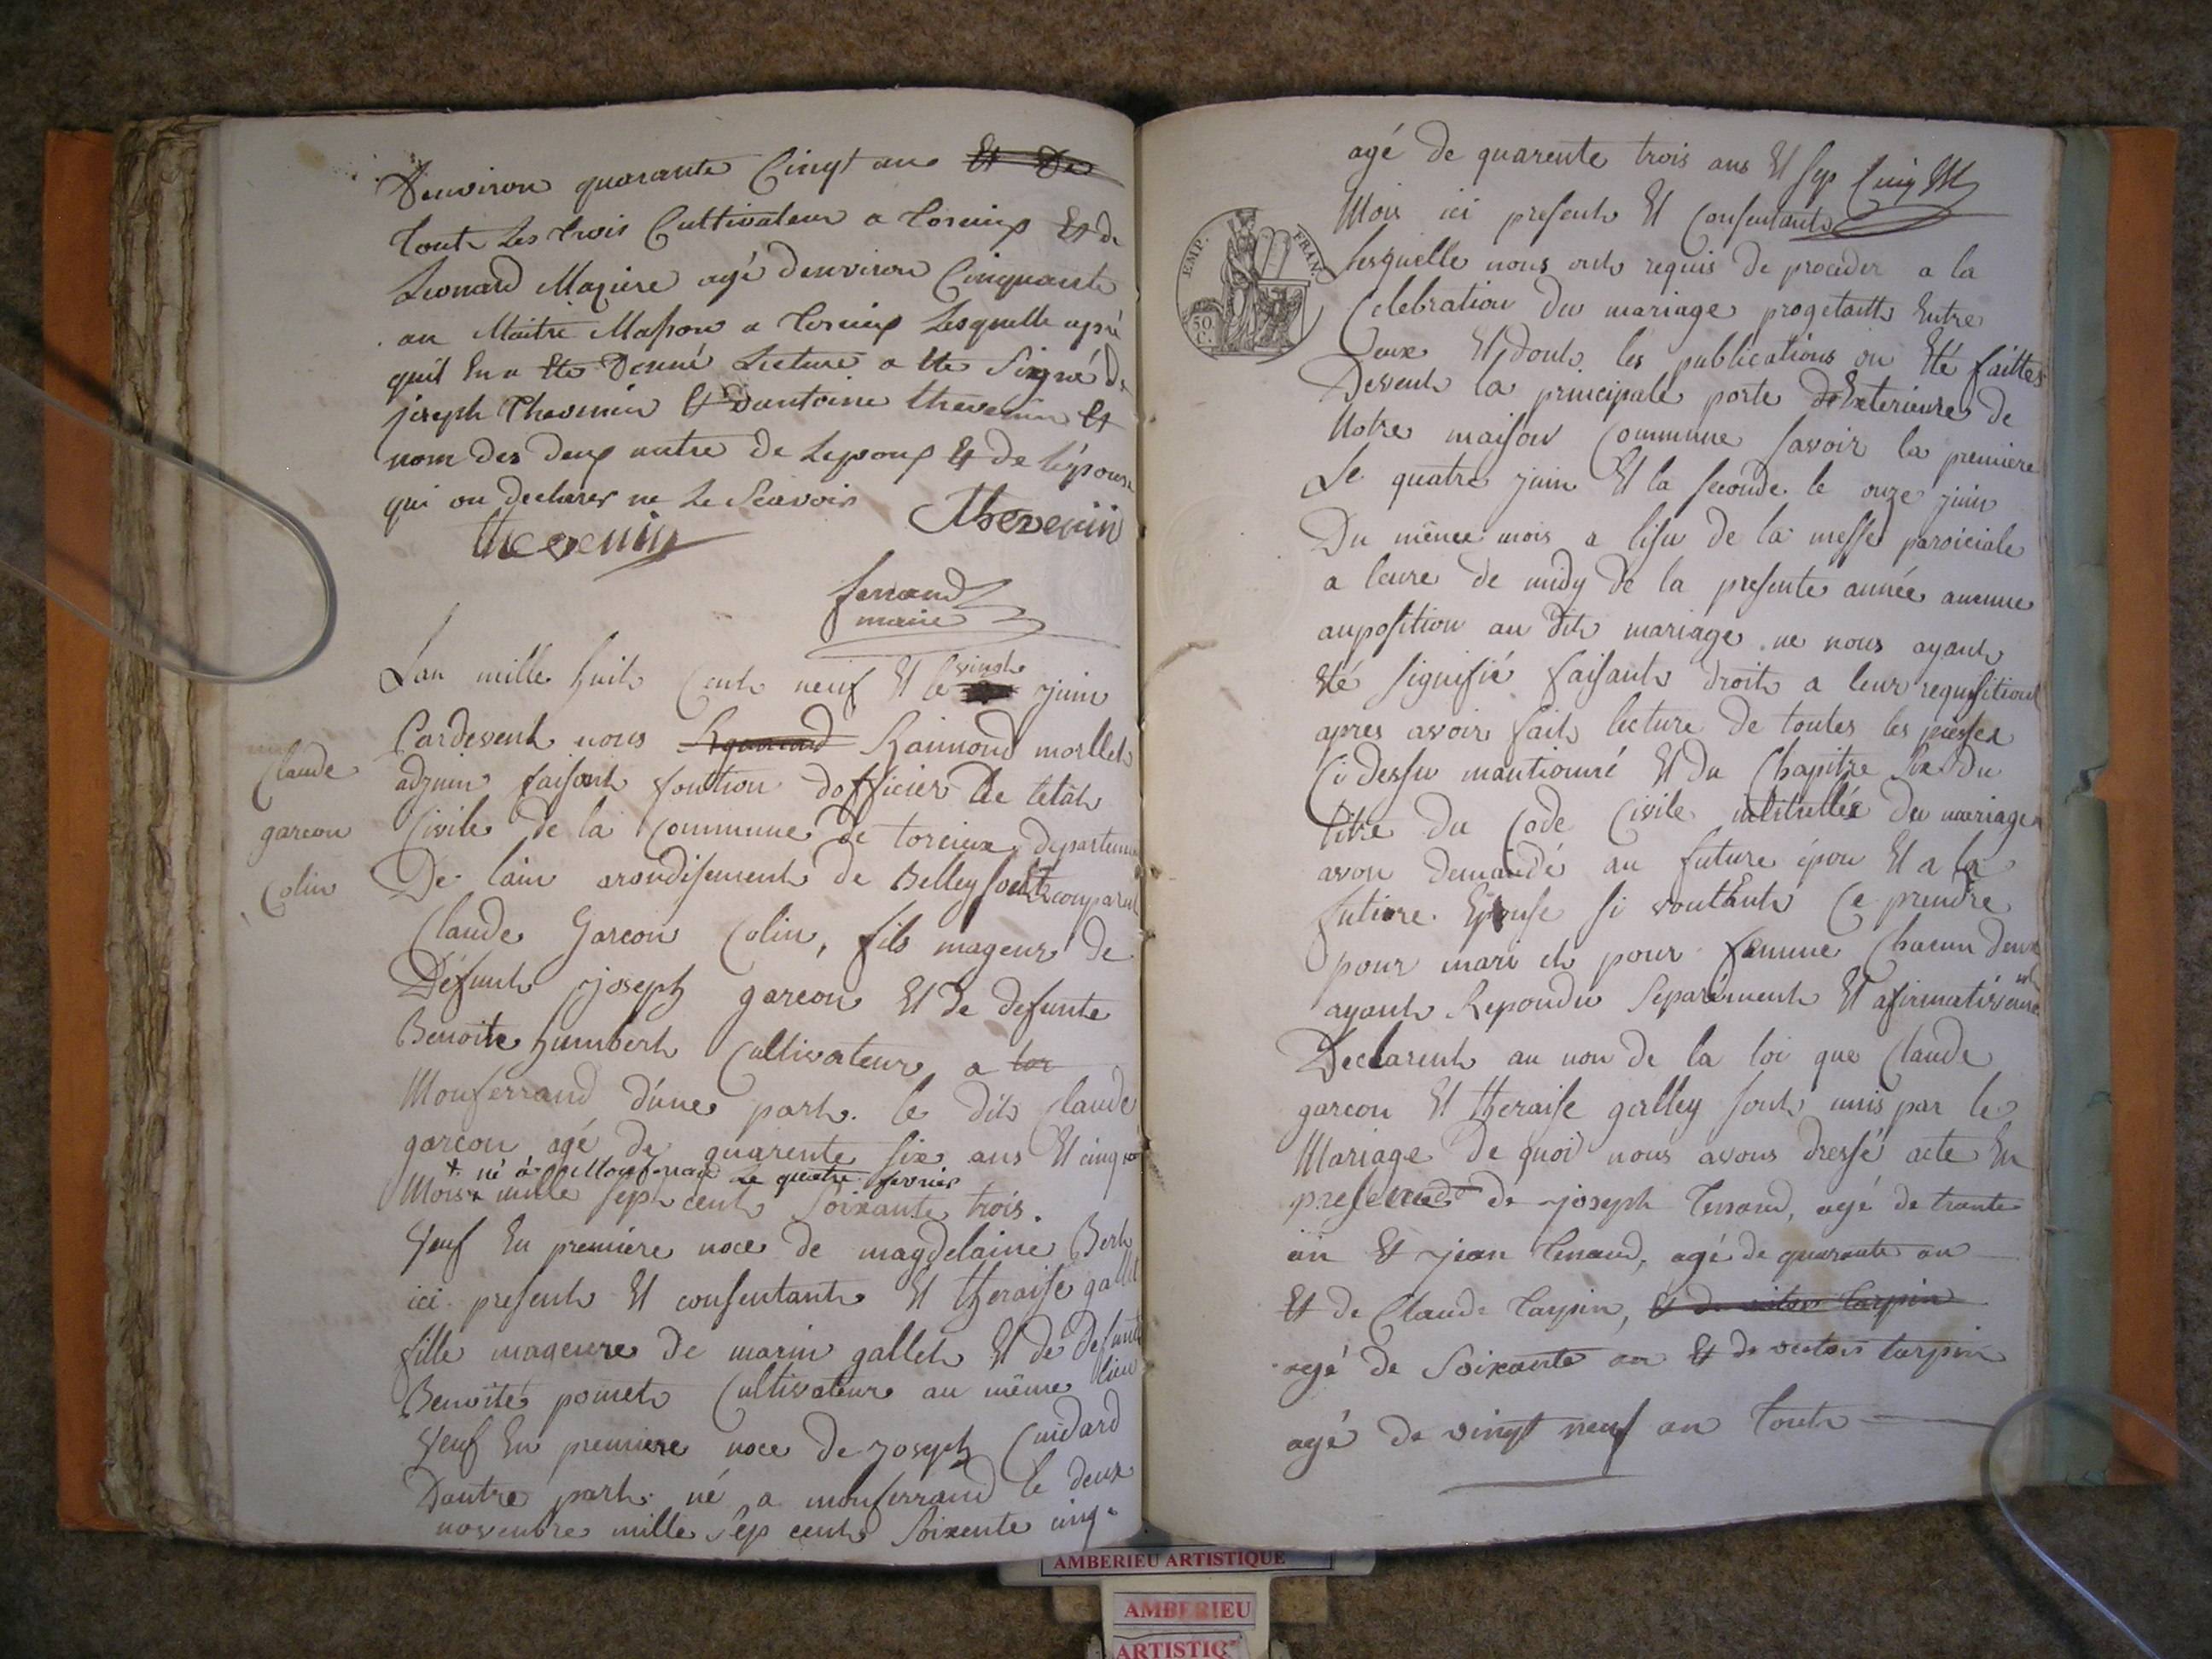 Denviron quarante Cinqt ans Et De
tout Les trois Cultivateur a torcieux Et de
Leonard Maziere agé denviron Cinquante
an Maitre Masson a torcieux Lesquelle aprè
quil En a Ete Donné Lecture a Ete Signé de
joseph thevenin Et Dantoine thevenin Et
nom des deux autre de Lepoux Et de lépouse
qui on declarer ne Le Scavoir
Thevenin
thevenin
ferrand
maire
Claude
garcon
Colin
Lan mille huit Cent neuf Et le vingt juin
Pardevent nous Raimond morllet
adjuin faisant fontion dofficier de letat
Civile de la Commune de torcieux, departeme
De lain arondisement de Belley sont comparut
Claude Garcon Colin, fils mageur de
Defunt joseph garcon Et de defunte
Benoite humbert Cultivateur a tor
Monferrand d'une part. le dit Claude
garcon agé de quarente six ans Et cinq
+ né à Monferrand Le quatre fevrier
Mois + mille sept cent soixante trois.
Veuf En premiere noce de magdelaine Bert
ici present Et consentant Et theraise gallet
fille mageure de marin gallet Et de defunte
Benoite pomet Cultivateur au même lieu
Veuf En premiere noce de joseph Cuidard
Dautre part né a monferrand le deux
novenbre mille sep cent soixente cinq
agé de quarente trois ans Et sep
Mois ici present Et consentant
EMP. FRAN.
50 C.
Lesquelle nous ont requis de proceder a la
Celebration du mariage progetant Entre
Deux Et dont les publications on Eté faittes
Devent la principale porte dExterieure de
Notre maison Commune savoir la premiere
Le quatre juin Et la seconde le onze juin
Du même mois a lisu de la messe paroiciale
a leure de midy de la presente année aucune
auposition au dit mariage ne nous ayant
Eté signifié faisant droit a leur requisitions
apres avoir fait lecture de toutes les piesses
Ci dessu mantionné Et du Chapitre six du
titre du Code Civile intitullée du mariage
avon demandé au future épou Et a la
future Epouse si voullent Ce prendre
pour mari et pour famme Chacun deux
ayant Repondu Separement Et afirmativement
Declarent au non de la loi que Claude
garcon Et theraise galley sont unis par le
Mariage De quoi nous avons dressé acte En
presence de joseph tenand, agé de trante
an Et jean tenand, agé de quarante an
Et de Claude tarpin, Et de victor tarpin
agé de Soixante an Et de victor tarpin
agé de vingt neuf an tout
AMBERIEU ARTISTIQUE
AMBERIEU
ARTISTIQ